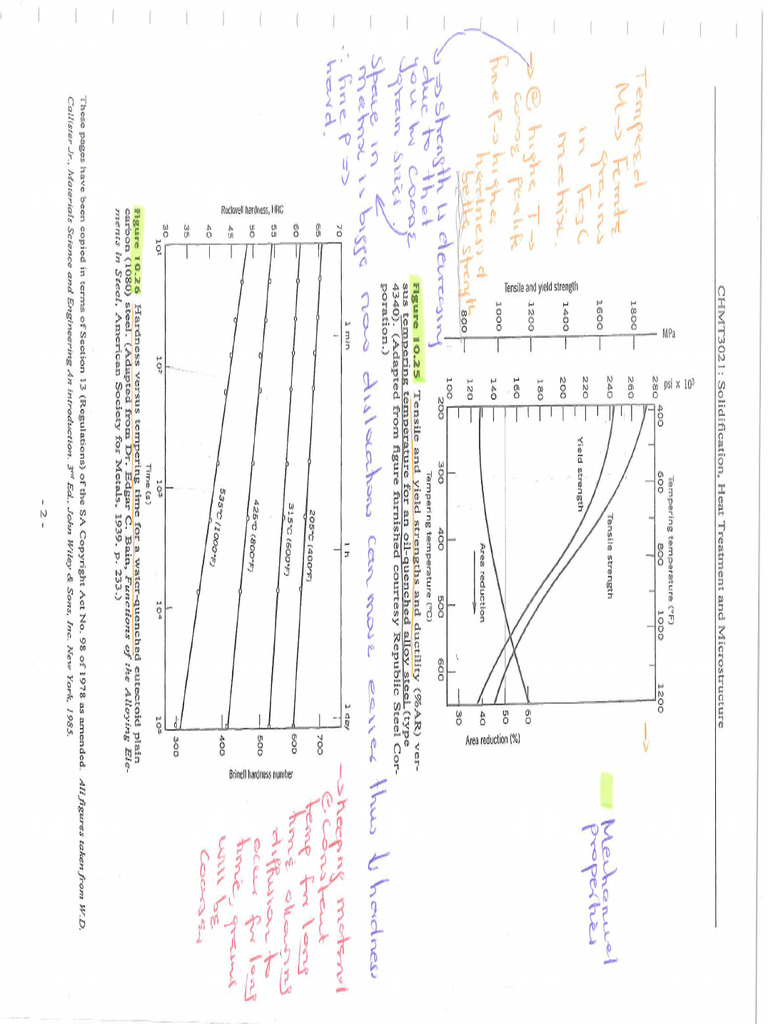 CHMT3021: Solidification, Heat Treatment and Microstructure
Mechanical
properties
Tempered
M → Ferrite
grains
in Fe3C
matrix.
→ @ highe T →
coarse pearlite
fine p → higher
hardness d
bette strength
→ strength is decreasing
due to that
you hv coarse
grain sizes.
space in
matrix is bigge now dislocations can move easier thus ↓ hardness
∴ fine p ⇒
hard.
Tempering temperature (°F)
400 600 800 1000 1200
psi × 10³
280
260
240
220
200
180
160
140
120
100
MPa
1800
1600
1400
1200
1000
800
Tensile and yield strength
Tensile strength
Yield strength
Area reduction
60
50
40
30
Area reduction (%)
200 300 400 500 600
Tempering temperature (°C)
Figure 10.25 Tensile and yield strengths and ductility (%AR) ver-
sus tempering temperature for an oil-quenched alloy steel (type
4340). (Adapted from figure furnished courtesy Republic Steel Cor-
poration.)
1 min 1 h 1 day
70
65
60
55
50
45
40
35
30
Rockwell hardness, HRC
205°C (400°F)
315°C (600°F)
425°C (800°F)
535°C (1000°F)
700
600
500
400
300
Brinell hardness number
10¹ 10² 10³ 10⁴ 10⁵
Time (s)
→ keeping material
@ constant
temp for long
time allowing
diffusion to
occur for long
time, grains
will be
coarser
Figure 10.26 Hardness versus tempering time for a water-quenched eutectoid plain
carbon (1080) steel. (Adapted from Dr. Edgar C. Bain, Functions of the Alloying Ele-
ments in Steel, American Society for Metals, 1939, p. 233.)
These pages have been copied in terms of Section 13 (Regulations) of the SA Copyright Act No. 98 of 1978 as amended. All figures taken from W.D.
Callister Jr., Materials Science and Engineering An Introduction, 3rd Ed., John Wiley & Sons, Inc. New York, 1985.
- 2 -